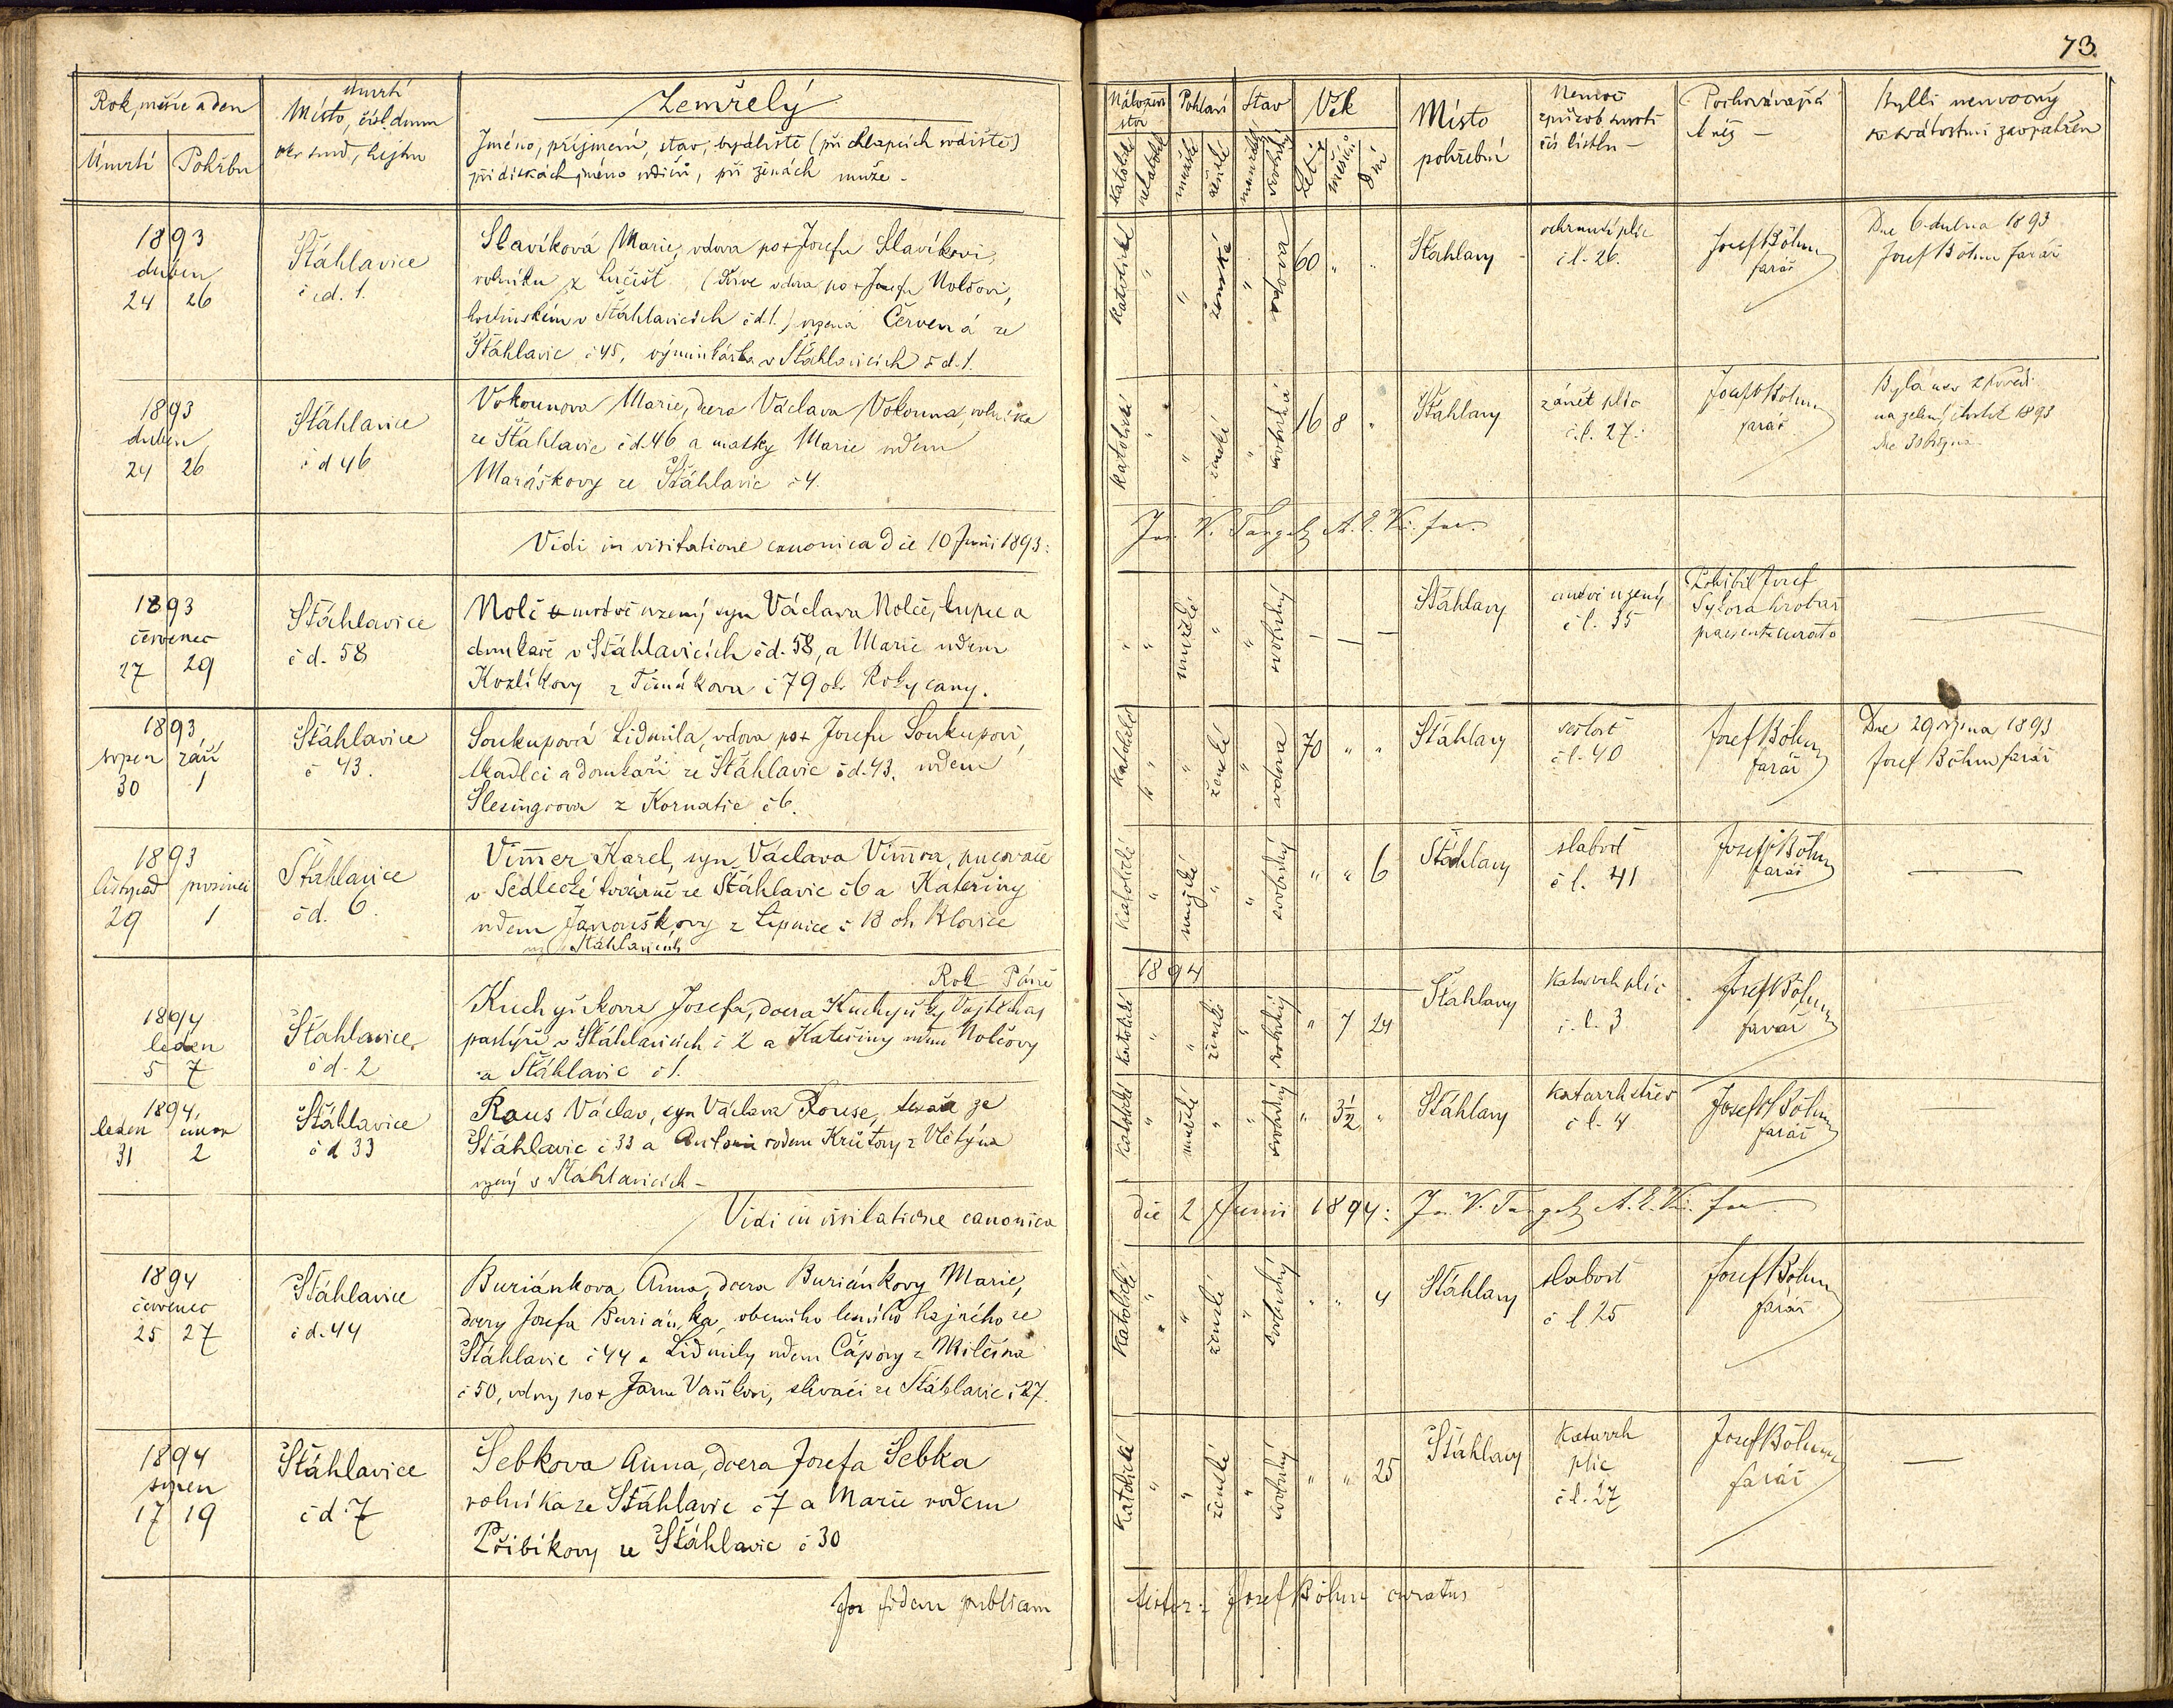 73.
Rok, měsíc a den
Úmrtí
Pohřbu
úmrtí
Místo, čísl. domu
Zemřelý
Jméno, příjmení, stav, bydliště (při chlapcích rodiště)
při dívkách jméno rodičů, při ženách muže -
Nábožen
ství
katolické
nekatolické
Pohlaví
mužské
ženské
Stav
svobodný
Věk
Let
měsíců
dní
Místo
pohřební
Nemoc
způsob smrti
čís lístku -
Pochovávající
kněz -
Byl-li nemocný
sv. svátostmi zaopatřen
1893
duben
24 26
Šťáhlavice
č d. 1.
Slavíková Marie, vdova po + Josefu Slavíkovi,
rolníku z Lučišť (Prve vdova po + Josefu Nolčovi,
hostinském v Šťáhlavicích č d. 1.) rozená Červená ze
Šťáhlavic č 45, výminkářka v Šťáhlavicích č d. 1.
katolické " " ženská " vdova 60 " "
Šťáhlavy
ochrnutí plic
č l. 26.
Josef Böhm
farář
Dne 6 dubna 1893
Josef Böhm farář
1893
duben
24 26
Šťáhlavice
č d 46
Vokounova Marie, dcera Václava Vokouna, rolníka
ze Šťáhlavic č d. 46 a matky Marie rodem
Maráškovy ze Šťáhlavic č 4.
katolické " " ženské " svobodná 16 8 "
Šťáhlavy
zánět plic
č. l. 27.
Josef Böhm
farář
Byla u sv zpovědi
na zelený čtvrtek 1893
Vidi in visitatione canonica die 10 Junii 1893:
1893
červenec
27 29
Šťáhlavice
č d. 58
Nolč mrtvě rozený syn Václava Nolče, tupce a
domkáře v Šťáhlavicích č d. 58, a Marie rodem
Kozlíkovy z Timákova č 79 okr Rokycany.
" " mužské " " svobodný — — —
Šťáhlavy
mrtvě rozený
č l. 35
Pohřbil Josef
Sýkora hrobař
praesente curato
—
1893
srpen září
30 1
Šťáhlavice
č 43.
Soukupová Lidmila, vdova po + Josefu Soukupovi,
tkadlci a domkáři ze Šťáhlavic č d. 43. rodem
Slesingrova z Kornatic č 6.
katolické " " ženské " vdova 70 " "
Šťáhlavy
sešlost
č l. 40
Josef Böhm
farář
Dne 29 srpna 1893
Josef Böhm farář
1893
listopad prosinec
29 1
Šťáhlavice
č d. 6.
Vimer Karel, syn Václava Vimra,
v Sedlecké továrně ze Šťáhlavic č 6 a Kateřiny
rodem Janouškovy z Lipnice č 18 oh Blovice
roz Šťáhlavicích
katolické " mužské " " svobodný " " 6
Šťáhlavy
slabost
č l. 41
Josef Böhm
farář
—
Rok Páně 1894
1894
leden
5 7
Šťáhlavice
č d. 2
Kuchyňkova Josefa, dcera Kuchyňky Vojtěcha,
pastýře v Šťáhlavicích č 2 a Kateřiny rodem Nolčovy
ze Šťáhlavic č 1.
katolické " " ženské " svobodný " 7 24
Šťáhlavy
Katarrh plic
č. l. 3
Josef Böhm
farář
—
1894.
leden únor
31 2
Šťáhlavice
č d 33
Raus Václav, syn Václava Rouse, tesaře ze
Šťáhlavic č 33 a Antonie rodem Krütovy z Vlčtýna
rozený v Šťáhlavicích -
katolické " mužské " " svobodný " 3½ "
Šťáhlavy
Katarrh střev
č l. 4
Josef Böhm
farář
—
Vidi in visitatione canonica die 2 Junii 1894:
1894
červenec
25 27
Šťáhlavice
č d. 44
Buriánkova Anna, dcera Buriánkovy Marie,
dcery Josefa Buriánka, obecního lesního hajného ze
Šťáhlavic č 44 a Lidmily rodem Čápovy z Milčína
č 50, vdovy po + Janu Vaňkovi, slévači ze Šťáhlavic č 27.
Katolické " " ženské " svobodný " " 4
Šťáhlavy
slabost
č l 25
Josef Böhm
farář
—
1894
srpen
17 19
Šťáhlavice
č d. 7
Šebkova Anna, dcera Josefa Šebka
rolníka ze Šťáhlavic č 7 a Marie rodem
Přibíkovy ze Šťáhlavic č 30
Katolické " " ženské " svobodný " " 25
Šťáhlavy
Katarrh
plic
č l. 27
Josef Böhm
farář
—
fidem publicam
testor: Josef Böhm curatus